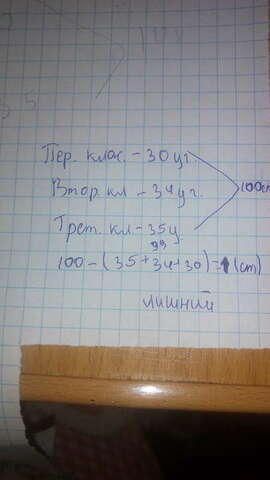 Пер. клас. - 30 уг.
Втор. кл - 34 уг.
100 ст
Трет. кл. - 35 у.
99
100 - (35 + 34 + 30) = 1 (ст)
лишний